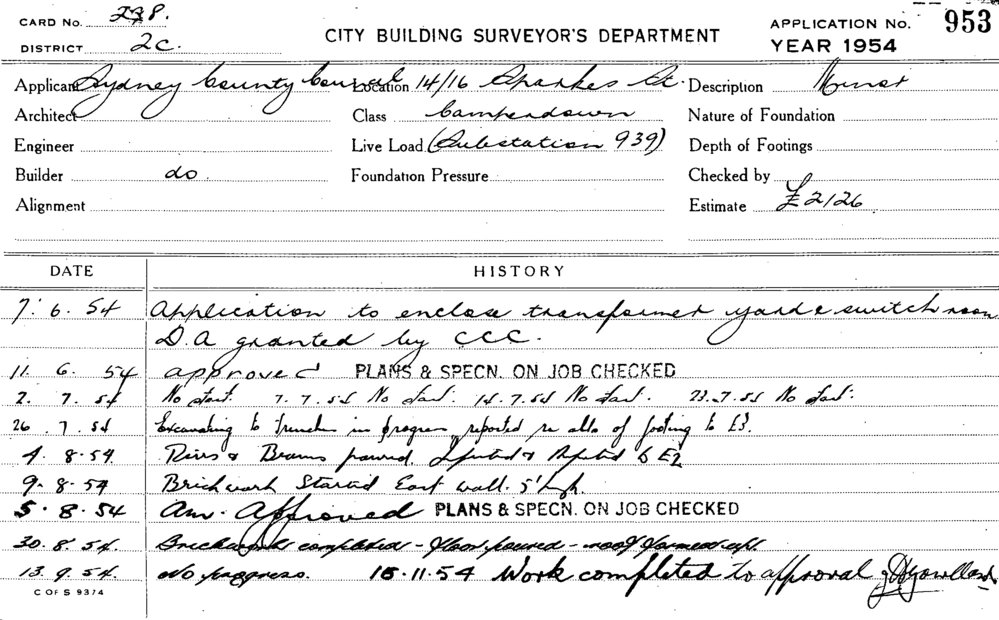 CARD No. 278. CITY BUILDING SURVEYOR'S DEPARTMENT APPLICATION No. 953
DISTRICT 2c. YEAR 1954
Applicant Sydney County Council Location 14/16 Sparkes St. Description
Architect Class Camperdown Nature of Foundation
Engineer Live Load (Substation 939) Depth of Footings
Builder do. Foundation Pressure Checked by
Alignment Estimate £2126
DATE HISTORY
7. 6. 54 Application to enclose transformer yard & switch room
D.A granted by CCC.
11. 6. 54 approved PLANS & SPECN. ON JOB CHECKED
2. 7. 54 No start. 7.7.54 No start. 14.7.54 No start. 23.7.54 No start.
26.7.54 Excavating to trenches in progress, reported re of footing to E3.
4. 8.54. Piers & Beams poured. Inspected & Reported to E2
9. 8. 54 Brickwork Started East wall. 5' high
5. 8. 54 Am. Approved PLANS & SPECN. ON JOB CHECKED
30. 8. 54. Brickwork completed - floor poured - roof formed up.
13. 9. 54. No progress. 15.11.54 Work completed to approval
C OF S 93/4